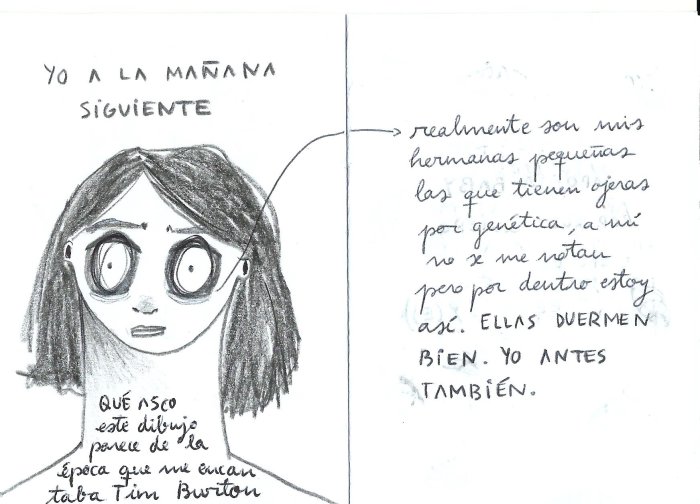 YO A LA MAÑANA
SiGUiENTE
realmente son mis
hermanas pequeñas
las que tienen ojeras
por genética, a mí
no se me notan
pero por dentro estoy
así. ELLAS DUERMEN
BiEN. YO ANTES
TAMBiÉN.
QUÉ ASCO
este dibujo
parece de la
época que me encan
taba Tim Burton